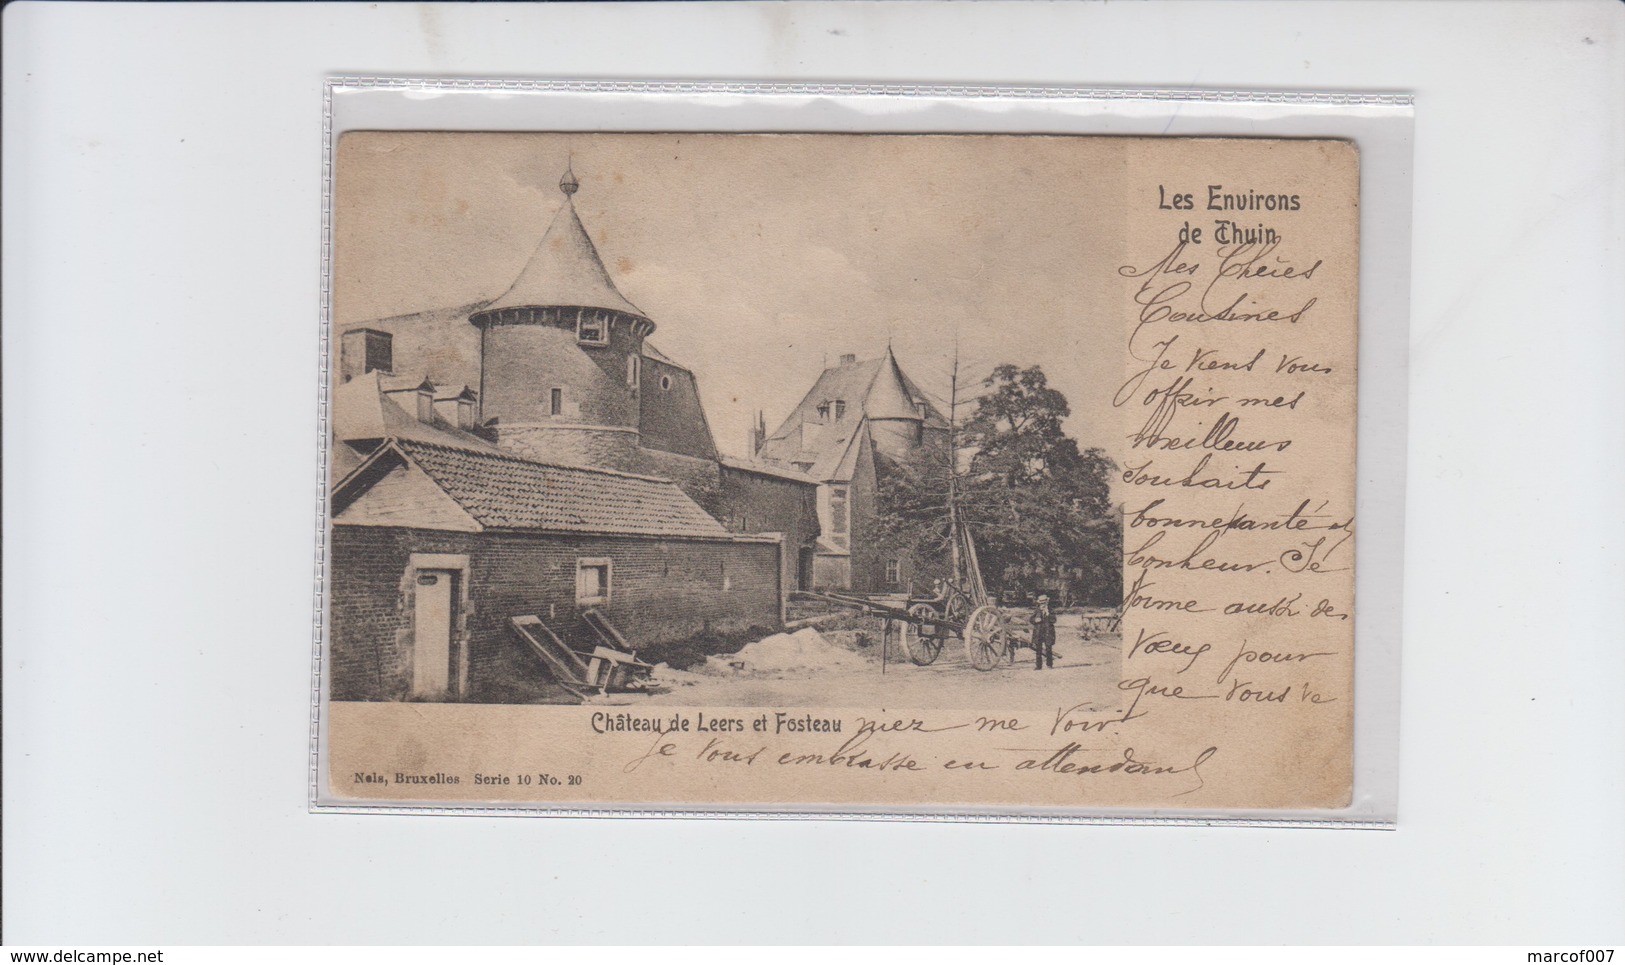 Les Environs
de Thuin
Mes Chères
Cousines
Je viens vous
offrir mes
meilleurs
souhaits
bonne santé et
bonheur. Je
forme aussi des
vœux pour
que vous ve
Château de Leers et Fosteau niez me voir
Je vous embrasse en attendant
Nels, Bruxelles Serie 10 No. 20
www.delcampe.net
marcof007